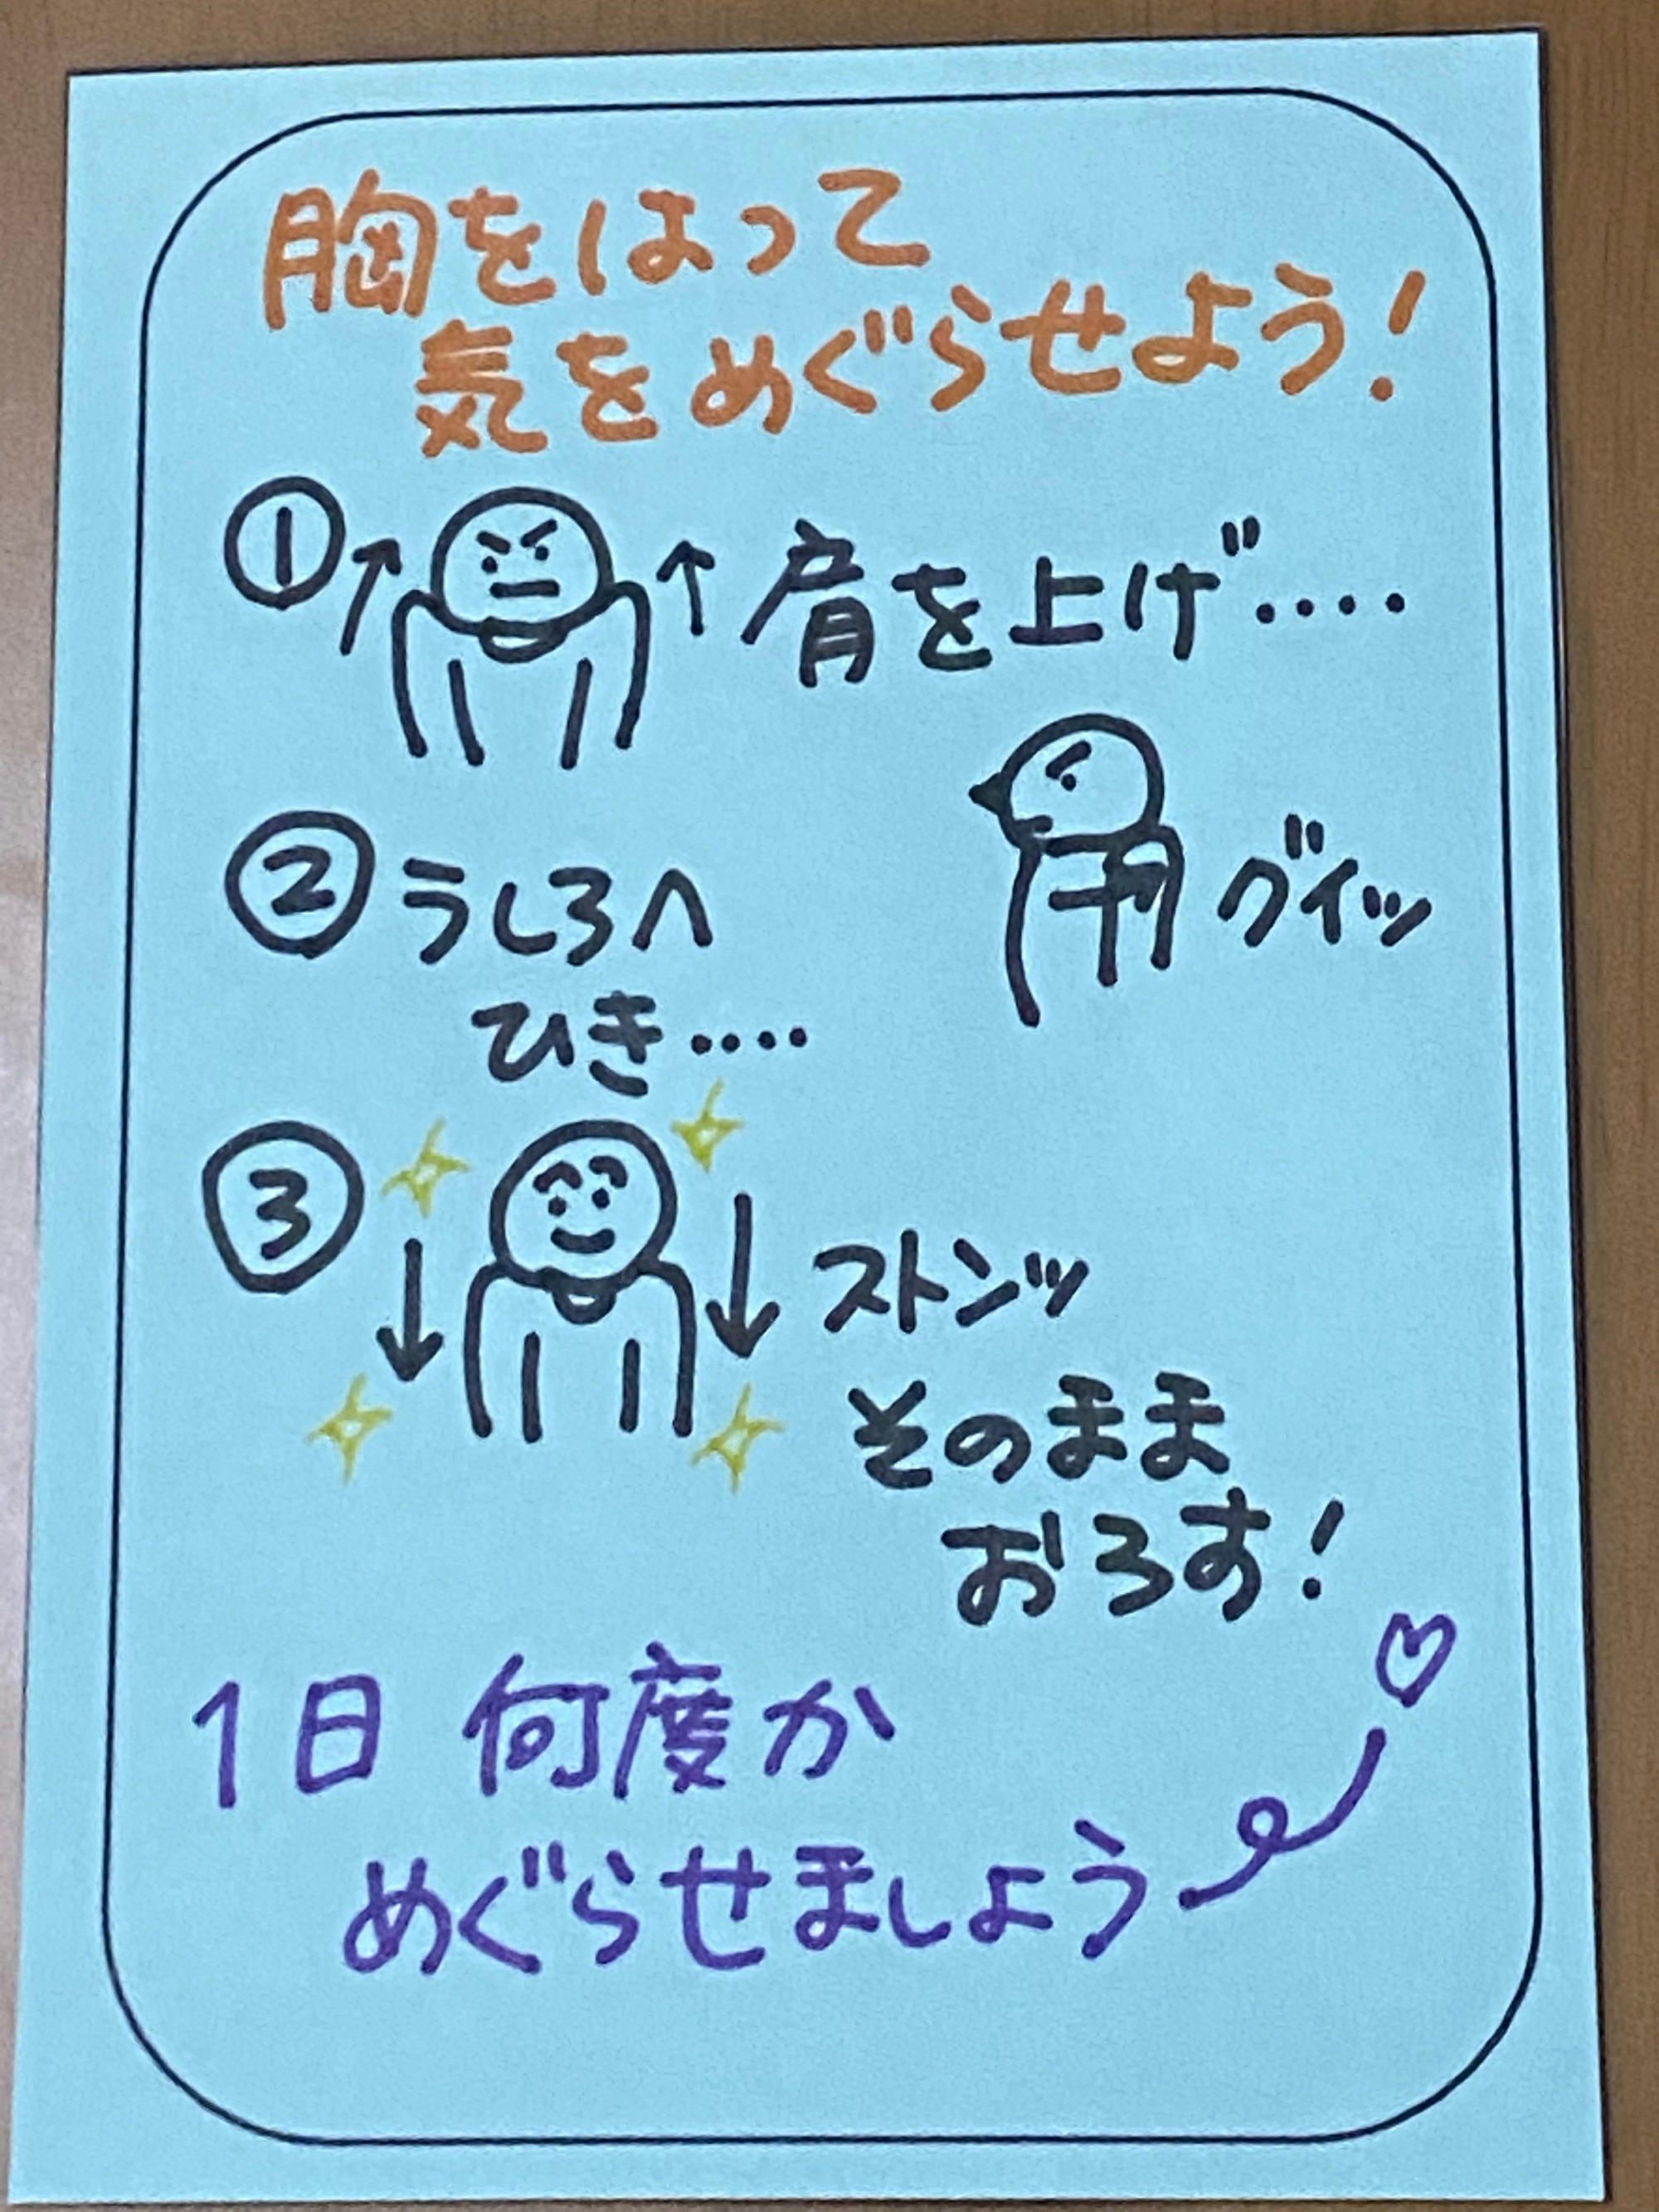 胸をはって
気をめぐらせよう!
① 肩を上げ‥‥
② うしろへ
ひき‥‥
グイッ
③ ストンッ
そのまま
おろす!
1日 何度か
めぐらせましょう